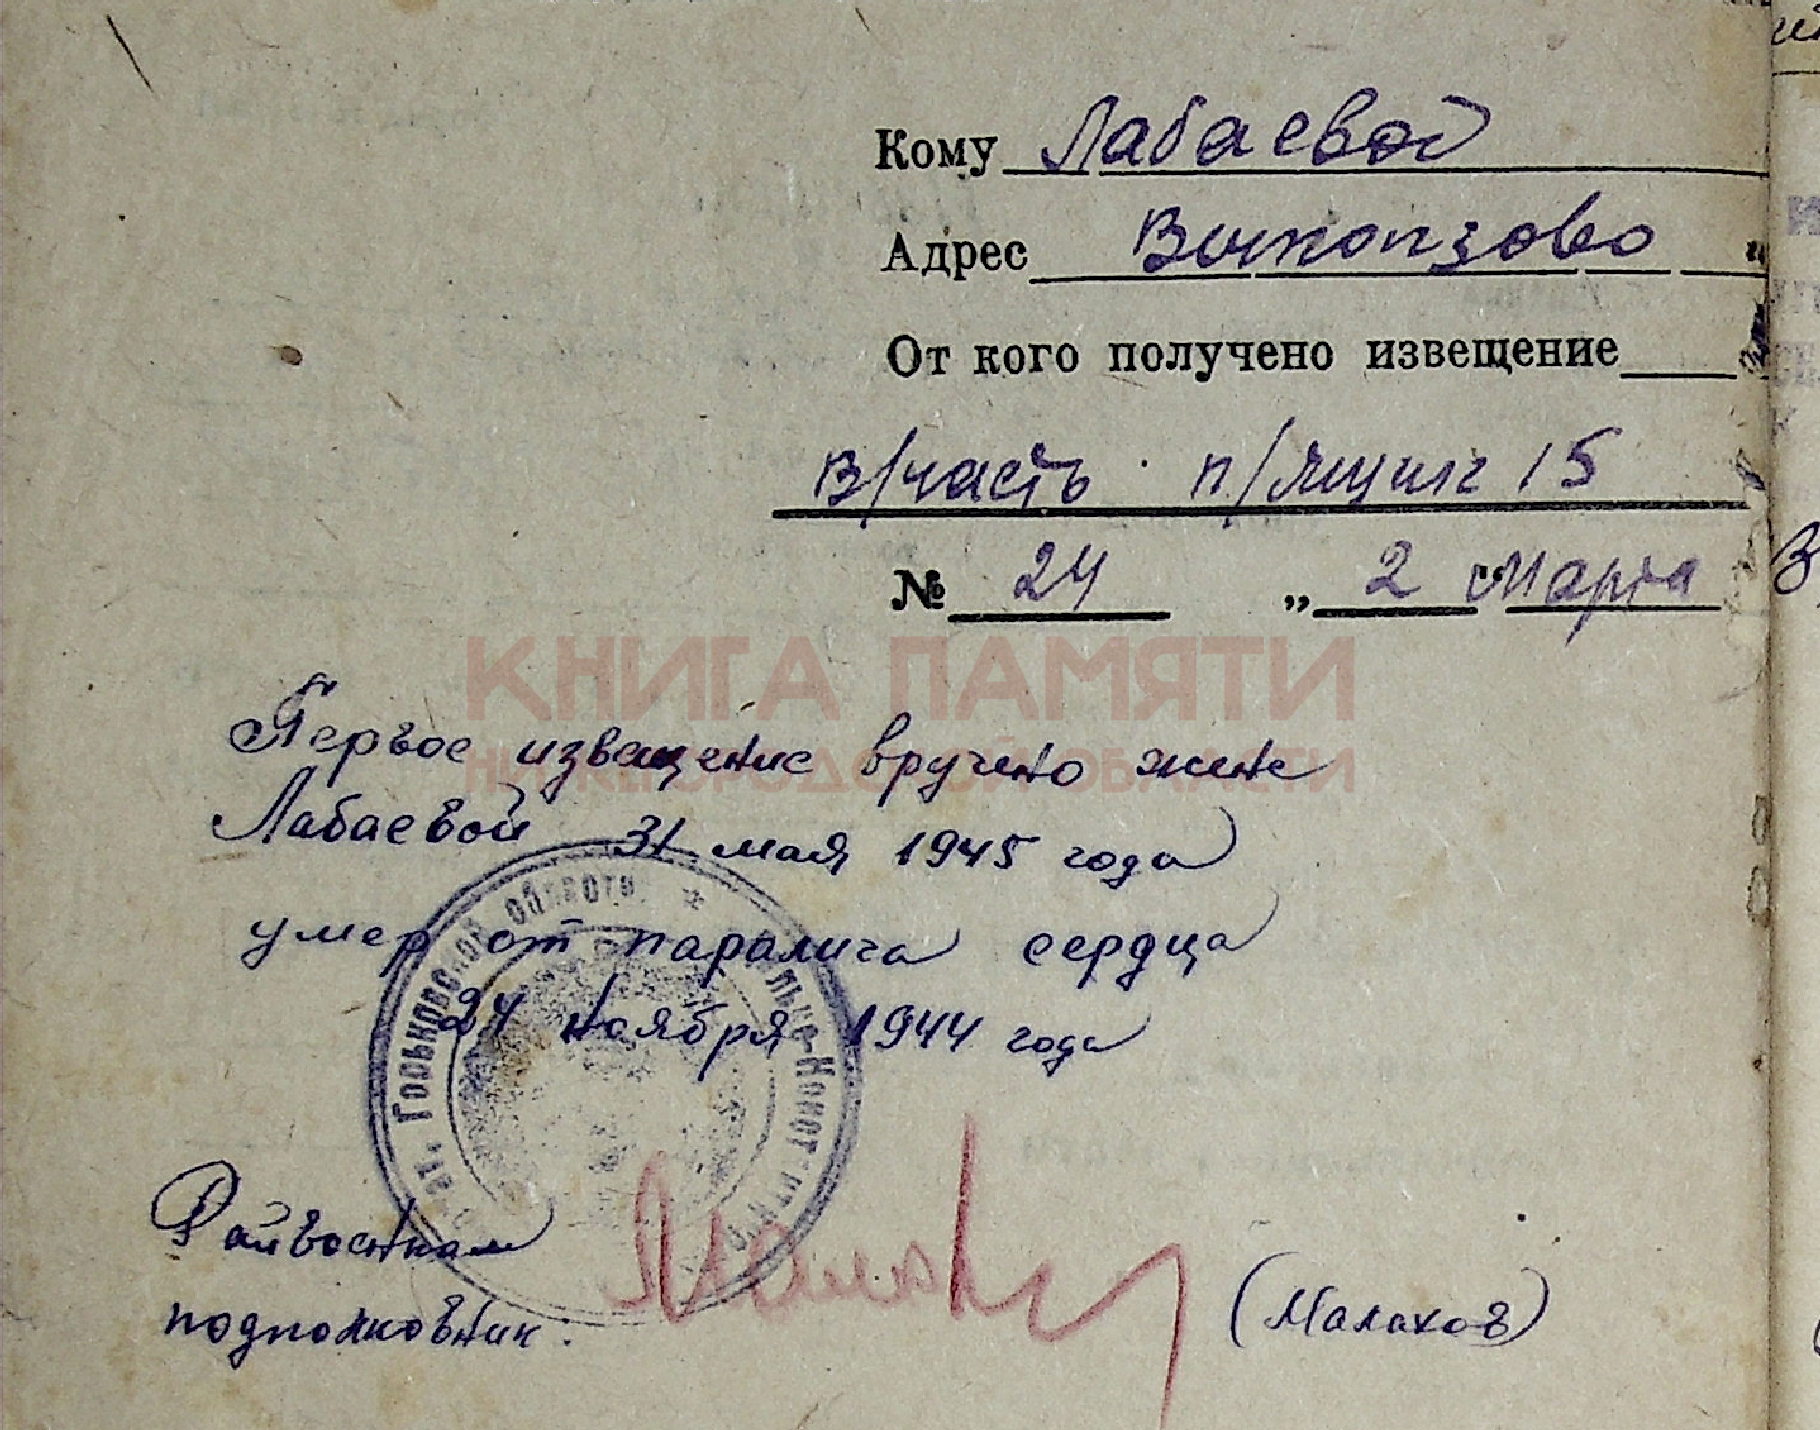 Кому Лабаевой
Адрес Выкопзово
От кого получено извещение
в/часть п/ящик 15
№ 24 „ 2 Марта
КНИГА ПАМЯТИ
НИЖЕГОРОДСКОЙ ОБЛАСТИ
Первое извещение вручено жене
Лабаевой 31 мая 1945 года
умер от паралича сердца
24 ноября 1944 года
Горьковской области *
Райвоенком
подполковник: (Малахов)